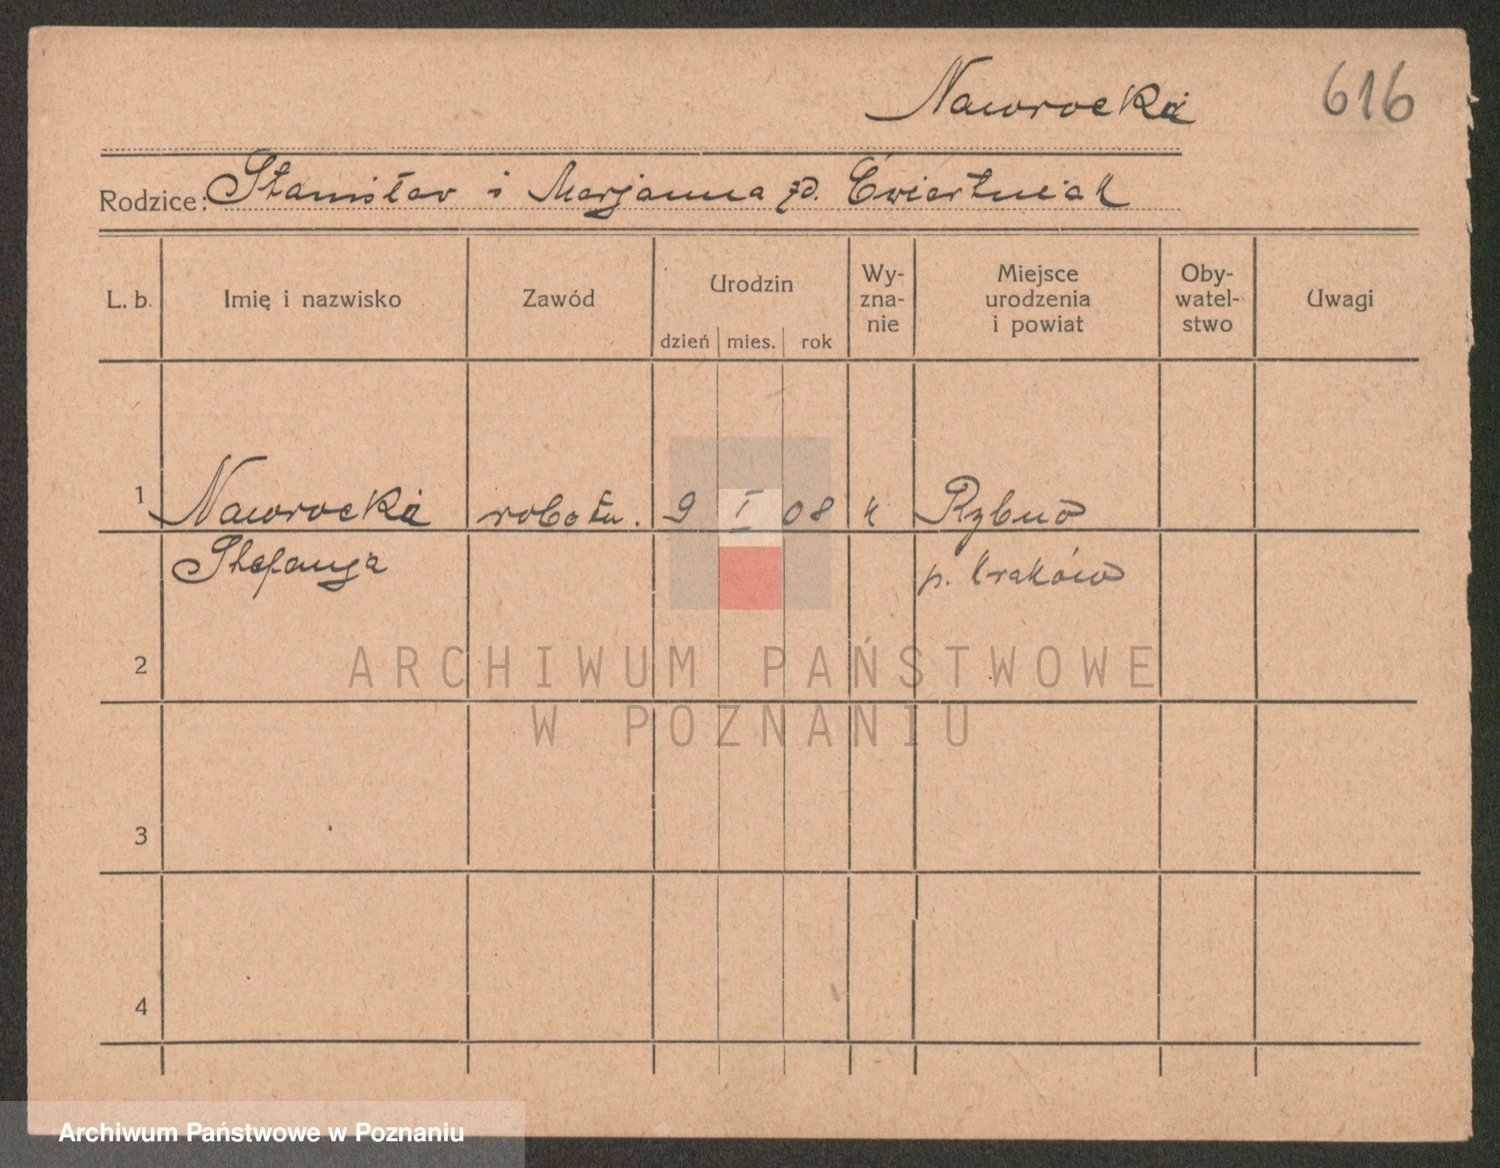 Nawrocka 616
Rodzice: Stanisław i Marjanna zd. Ćwiertniak
L. b. Imię i nazwisko Zawód Urodzin dzień mies. rok Wy-zna-nie Miejsce urodzenia i powiat Oby-watel-stwo Uwagi
1 Nawrocka robotn. 9 I 08 k Rybno
Stefanja p. Kraków
2
ARCHIWUM PAŃSTWOWE
W POZNANIU
3
4
Archiwum Państwowe w Poznaniu